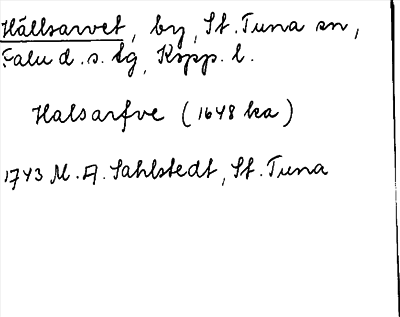 Hällsarvet, by, St. Tuna sn,
Falu d. s. lg, Kopp. l.
Halsarfve (1648 ka)
1743 M. A. Sahlstedt, St. Tuna